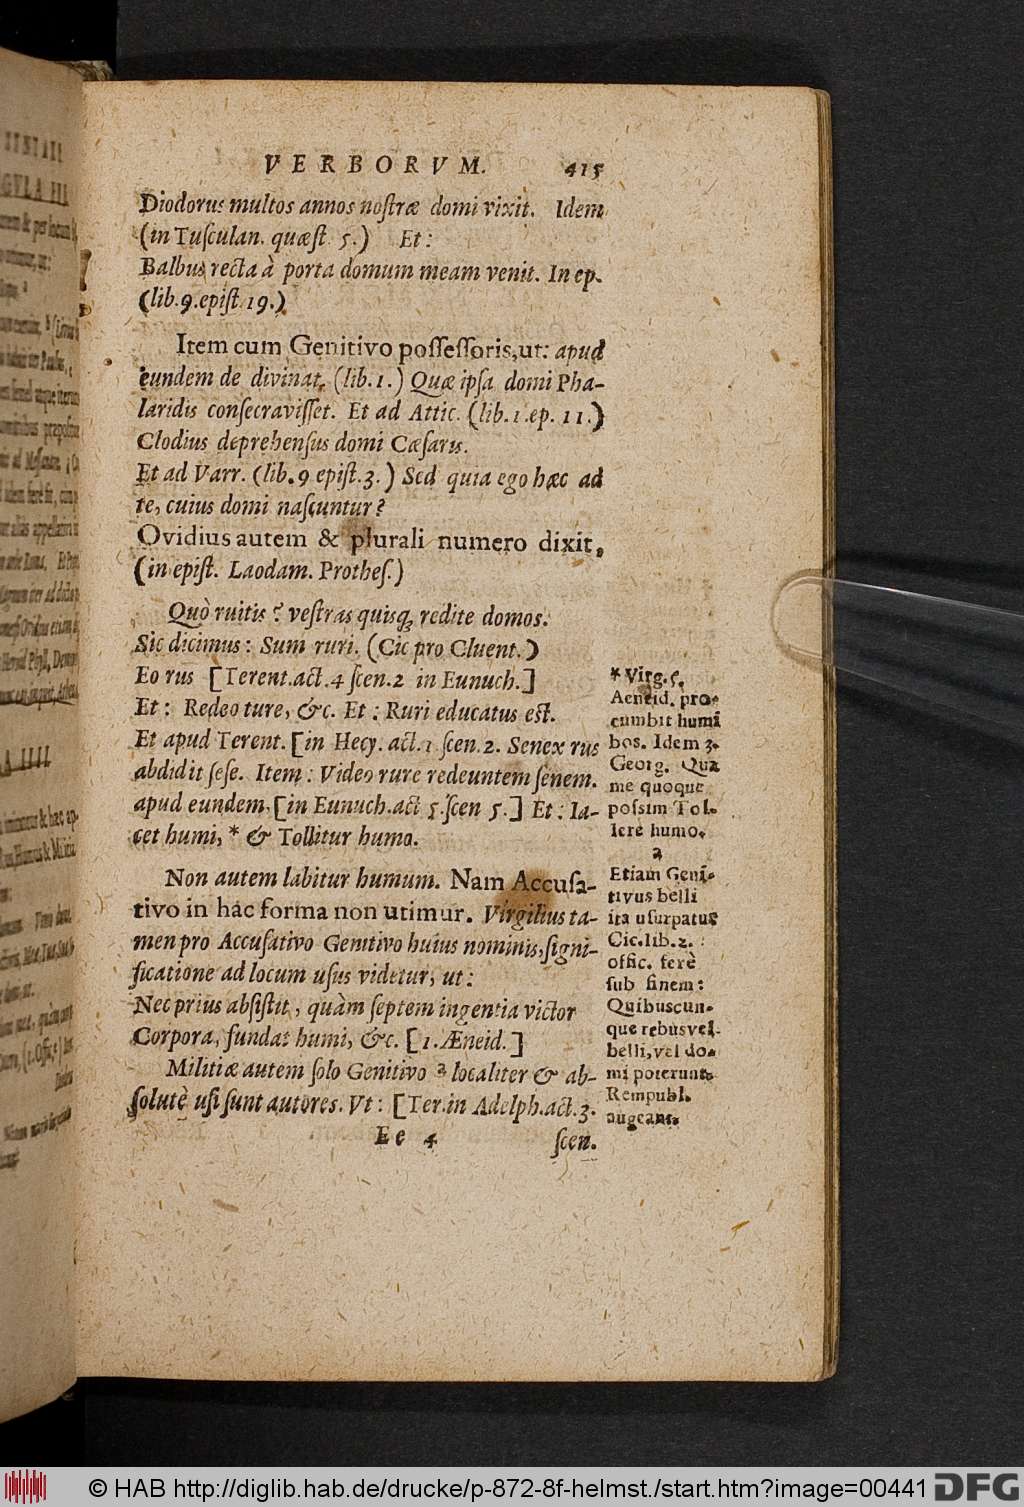 VERBORVM. 415
Diodorus multos annos nostræ domi vixit. Idem
(in Tusculan. quæst. 5.) Et:
Balbus recta à porta domum meam venit. In ep.
(lib.9.epist.19.)
Item cum Genitivo possessoris, ut: apud
eundem de divinat. (lib.1.) Quæ ipsa domi Pha-
laridis consecravisset. Et ad Attic. (lib.1.ep. 11.)
Clodius deprehensus domi Cæsaris.
Et ad Varr. (lib.9 epist.3.) Sed quia ego hæc ad
te, cuius domi nascuntur?
Ovidius autem & plurali numero dixit,
(in epist. Laodam. Prothes.)
Quò ruitis? vestras quisq; redite domos.
Sic dicimus: Sum ruri. (Cic pro Cluent.)
Eo rus [Terent.act.4 scen.2 in Eunuch.]
Et: Redeo rure, &c. Et: Ruri educatus est.
Et apud Terent. [in Hecy. act.1 scen.2. Senex rus
abdidit sese. Item: Video rure redeuntem senem.
apud eundem, [in Eunuch.act 5.scen 5.] Et: Ia-
cet humi, * & Tollitur humo.
Non autem labitur humum. Nam Accusa-
tivo in hac forma non utimur. Virgilius ta-
men pro Accusativo Genitivo huius nominis, signi-
ficatione ad locum usus videtur, ut:
Nec prius absistit, quàm septem ingentia victor
Corpora, fundat humi, &c. [1. Æneid.]
Militiæ autem solo Genitivo a localiter & ab-
solutè usi sunt autores. Vt: [Ter.in Adelph.act.3.
Ee 4 scen.
* Virg. 5.
Aeneid. pro-
cumbit humi
bos. Idem 3.
Georg. Qua
me quoque
possim Tol-
lere humo.
a
Etiam Geni-
tivus belli
ita usurpatur
Cic.lib.2.
offic. ferè
sub finem:
Quibuscun-
que rebus vel
belli, vel do-
mi poterunt,
Rempubl.
augeant.
© HAB http://diglib.hab.de/drucke/p-872-8f-helmst./start.htm?image=00441 DFG